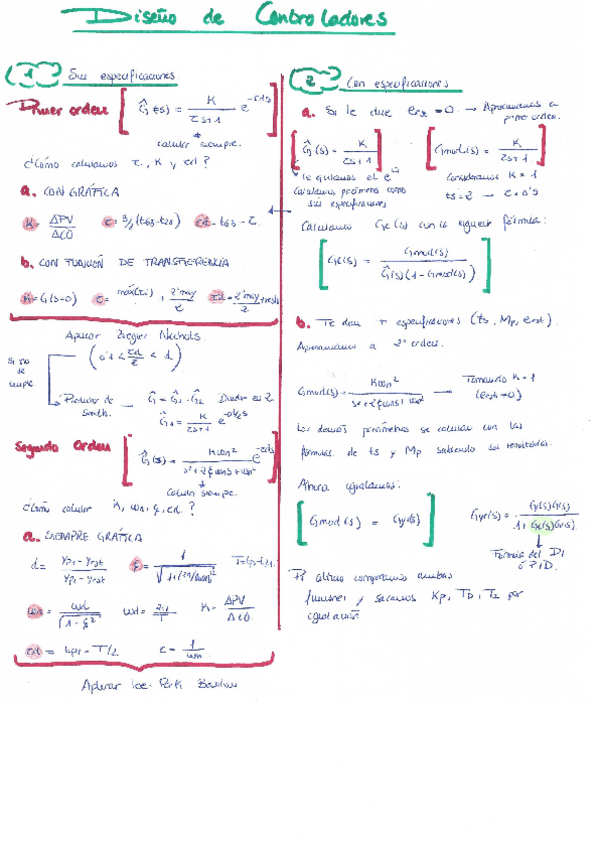 Diseño de Controladores
1 Sin especificaciones
Primer orden [ Ĝ(s) = K / (τs+1) e^-τds ]
calcular siempre.
¿Cómo calculamos τ, K y τd?
a. CON GRÁFICA
K = ΔPV / ΔCO τ = 3/2 (t63 - t28) τd = t63 - τ.
b. CON FUNCIÓN DE TRANSFERENCIA
K = G(s=0)
Aplicar Ziegler Nichols
Si no se cumple (0'1 < τd/τ < 1)
Predictor de Smith.
Segundo Orden [ Ĝ(s) = Kωn² / (s²+2ξωns+ωn²) e^-τds ]
Calcular siempre.
¿Cómo calcular K, ωn, ξ, τd?
a. SIEMPRE GRÁFICA
d = (yp2 - yrst) / (yp1 - yrst) ξ = 1 / √(1+(2π/lnd)²) T = tp2 - tp1.
ωn = ωd / √(1-ξ²) ωd = 2π / T K = ΔPV / ΔCO.
τd = tp1 - T/2 τ = 1 / ωn
Aplicar Lee-Park
2 Con especificaciones
a. Si te dice erst = 0. → Aproximamos a primer orden.
[ Ĝ(s) = K / (τs+1) ] [ Gmod(s) = K / (τs+1) ]
le quitamos el e
Calculamos parámetros como sin especificaciones
Consideramos K = 1
Calculamos Gc(s) con la siguiente fórmula:
[ Gc(s) = Gmod(s) / (Ĝ(s)(1 - Gmod(s))) ]
b. Te dan especificaciones (ts, Mp, erst).
Aproximamos a 2º orden.
Gmod(s) = Kωn² / (s²+2ξωns+ωn²) Tomando K = 1 (erst = 0)
Los demás parámetros se calculan con las
fórmulas de ts y Mp sabiendo sus resultados.
Ahora igualamos:
[ Gmod(s) = Gyr(s) ] Gyr(s) = Gc(s)G(s) / (1 + Gc(s)G(s))
Fórmula del PI ó PID.
Por último comparamos ambas
funciones y sacamos Kp, TD, TI por
igualación